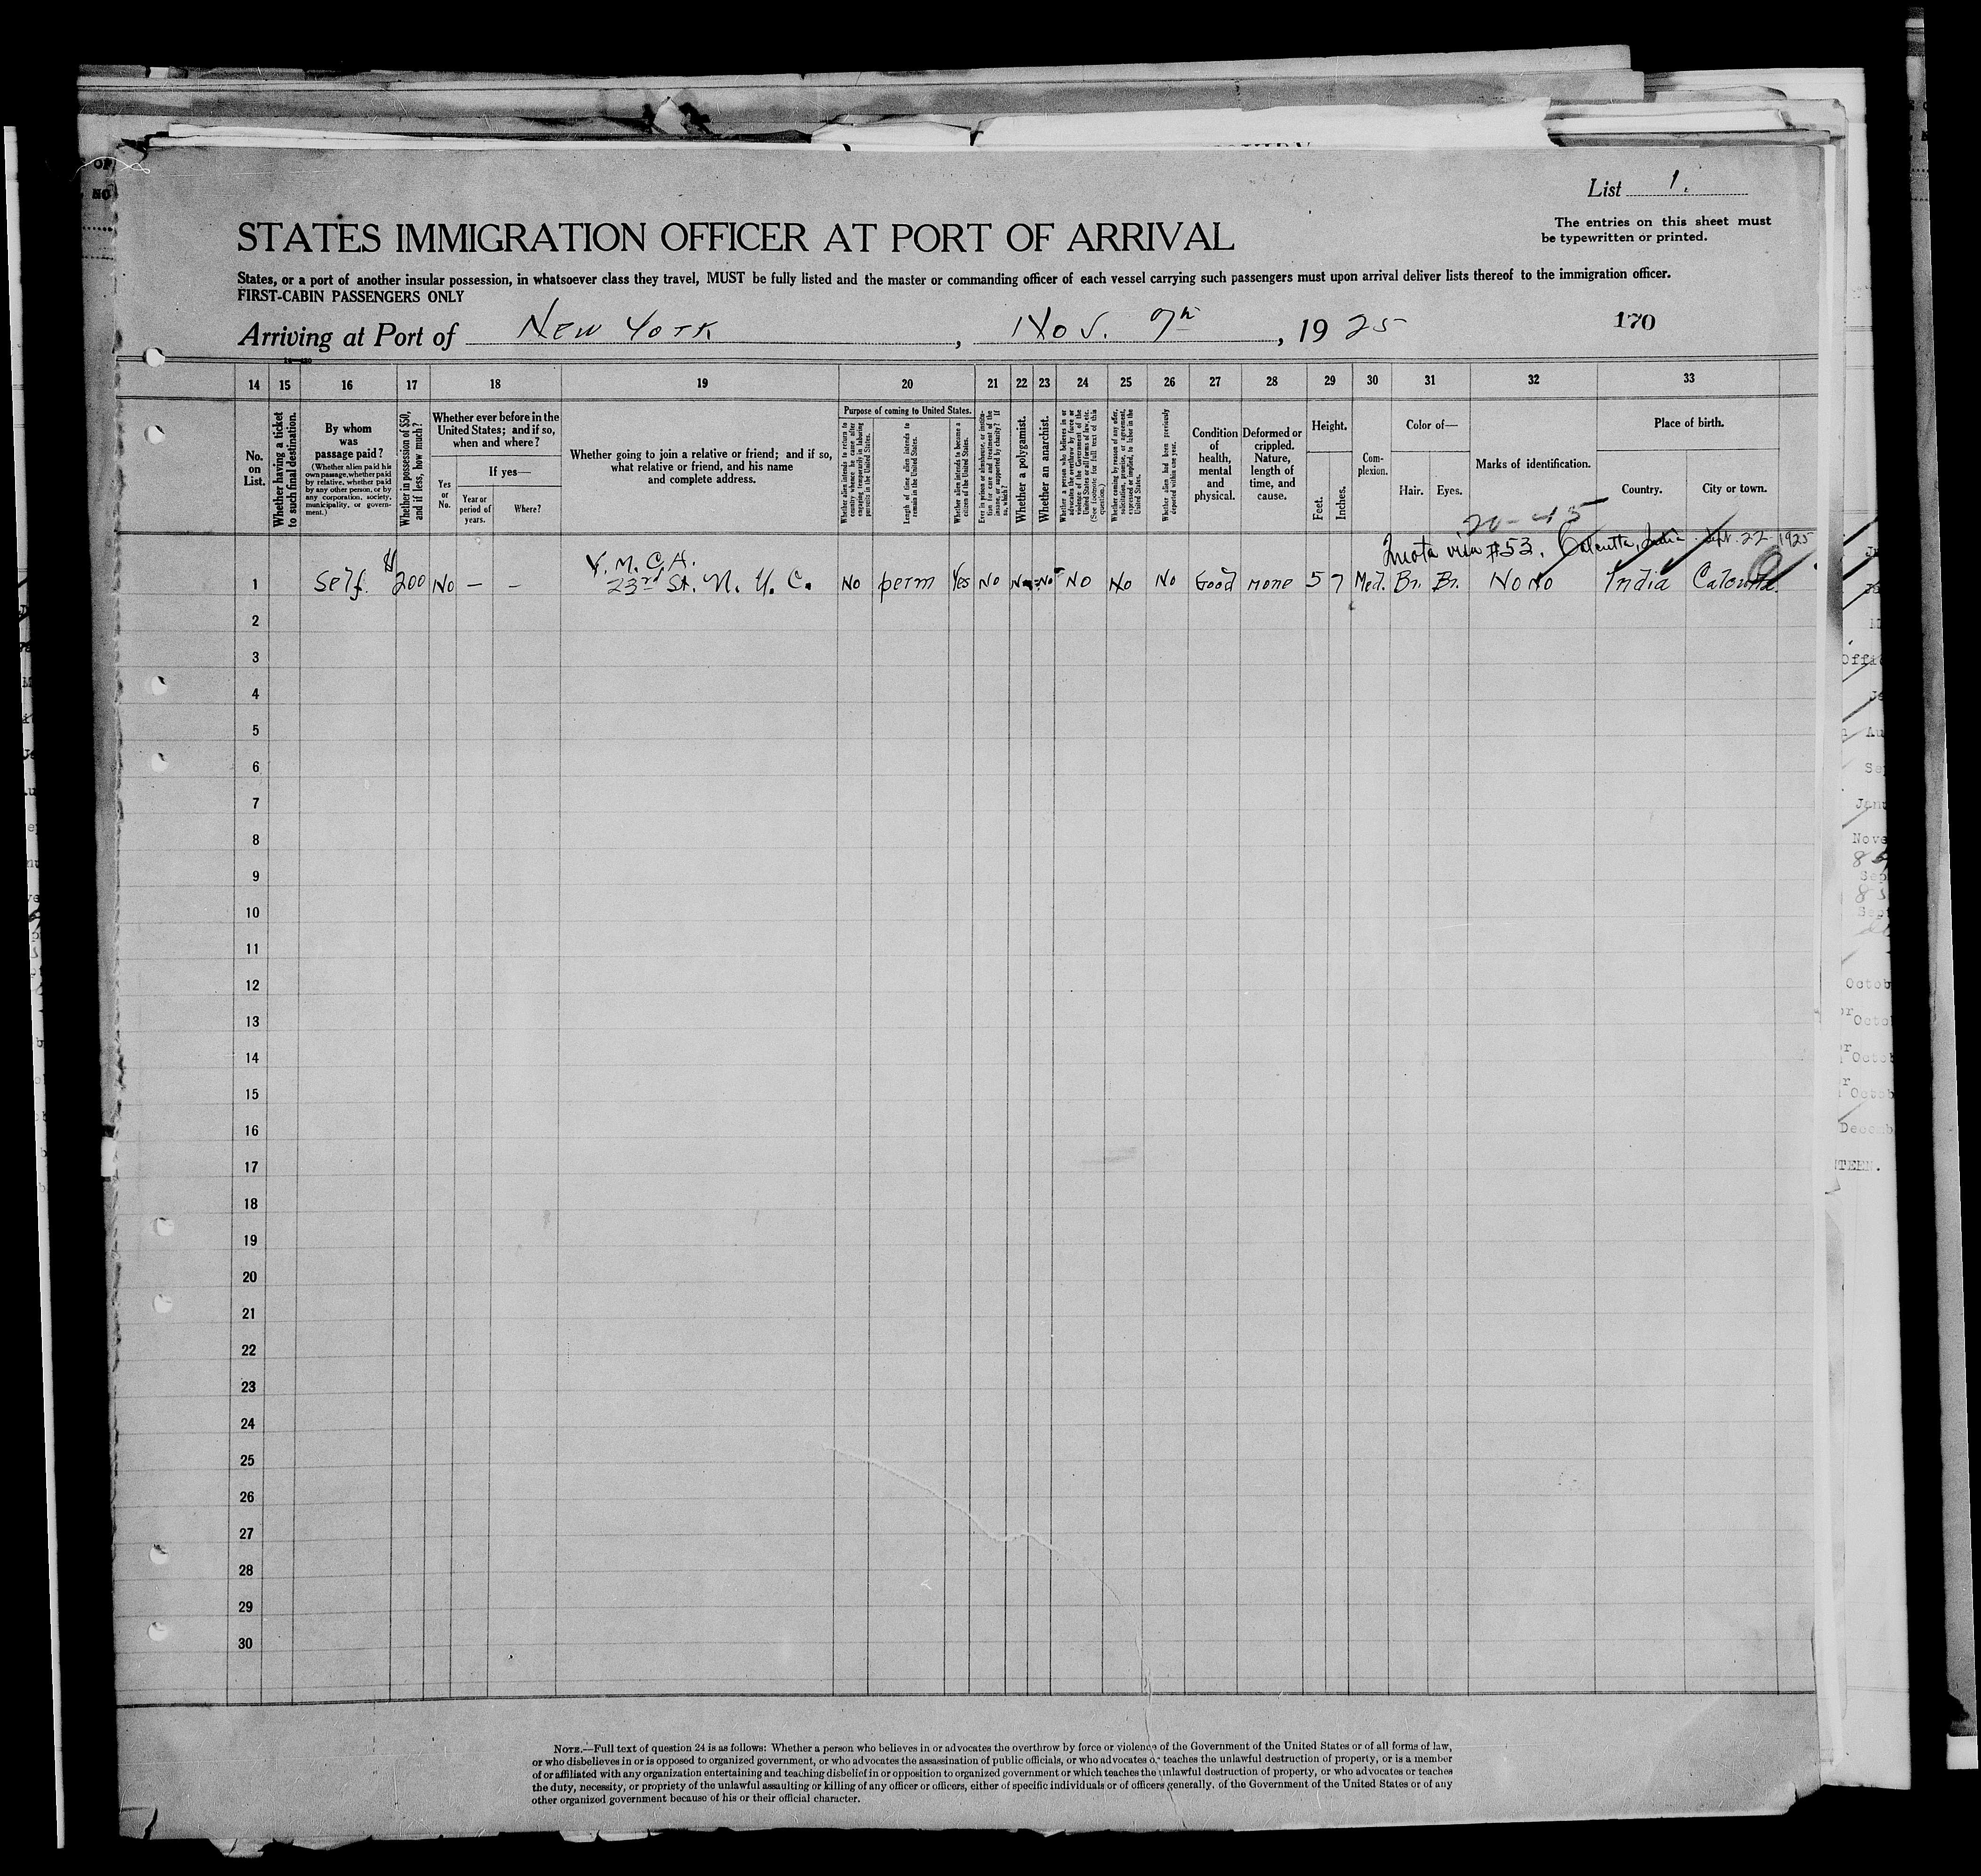 List 1.
The entries on this sheet must
be typewritten or printed.
STATES IMMIGRATION OFFICER AT PORT OF ARRIVAL
States, or a port of another insular possession, in whatsoever class they travel, MUST be fully listed and the master or commanding officer of each vessel carrying such passengers must upon arrival deliver lists thereof to the immigration officer.
FIRST-CABIN PASSENGERS ONLY
Arriving at Port of New York, Nov. 7th, 1925
170
14 15 16 17 18 19 20 21 22 23 24 25 26 27 28 29 30 31 32 33
No. on List.
Whether having a ticket to such final destination.
By whom was passage paid?
(Whether alien paid his own passage, whether paid by relative, whether paid by any other person, or by any corporation, society, municipality, or government.)
Whether in possession of $50, and if less, how much?
Whether ever before in the United States; and if so, when and where?
If yes—
Yes or No.
Year or period of years.
Where?
Whether going to join a relative or friend; and if so, what relative or friend, and his name and complete address.
Purpose of coming to United States.
Whether alien intends to return to country whence he came after engaging temporarily in laboring pursuits in the United States.
Length of time alien intends to remain in the United States.
Whether alien intends to become a citizen of the United States.
Ever in prison or almshouse, or institution for care and treatment of the insane, or supported by charity? If so, which?
Whether a polygamist.
Whether an anarchist.
Whether a person who believes in or advocates the overthrow by force or violence of the Government of the United States or all forms of law, etc. (See footnote for full text of this question.)
Whether coming by reason of any offer, solicitation, promise, or agreement, expressed or implied, to labor in the United States.
Whether alien had been previously deported within one year.
Condition of health, mental and physical.
Deformed or crippled. Nature, length of time, and cause.
Height.
Feet.
Inches.
Complexion.
Color of—
Hair.
Eyes.
Marks of identification.
Place of birth.
Country.
City or town.
20-45
Quota visa #53. Calcutta, India Sept. 22 1925
Y. M. C. A.
1 Self. $200 No – – 23rd St. N. Y. C. No perm Yes No No No No No No Good none 5 7 Med. Br. Br. No No India Calcutta
2
3
4
5
6
7
8
9
10
11
12
13
14
15
16
17
18
19
20
21
22
23
24
25
26
27
28
29
30
NOTE.—Full text of question 24 is as follows: Whether a person who believes in or advocates the overthrow by force or violence of the Government of the United States or of all forms of law,
or who disbelieves in or is opposed to organized government, or who advocates the assassination of public officials, or who advocates or teaches the unlawful destruction of property, or is a member
of or affiliated with any organization entertaining and teaching disbelief in or opposition to organized government or which teaches the unlawful destruction of property, or who advocates or teaches
the duty, necessity, or propriety of the unlawful assaulting or killing of any officer or officers, either of specific individuals or of officers generally, of the Government of the United States or of any
other organized government because of his or their official character.